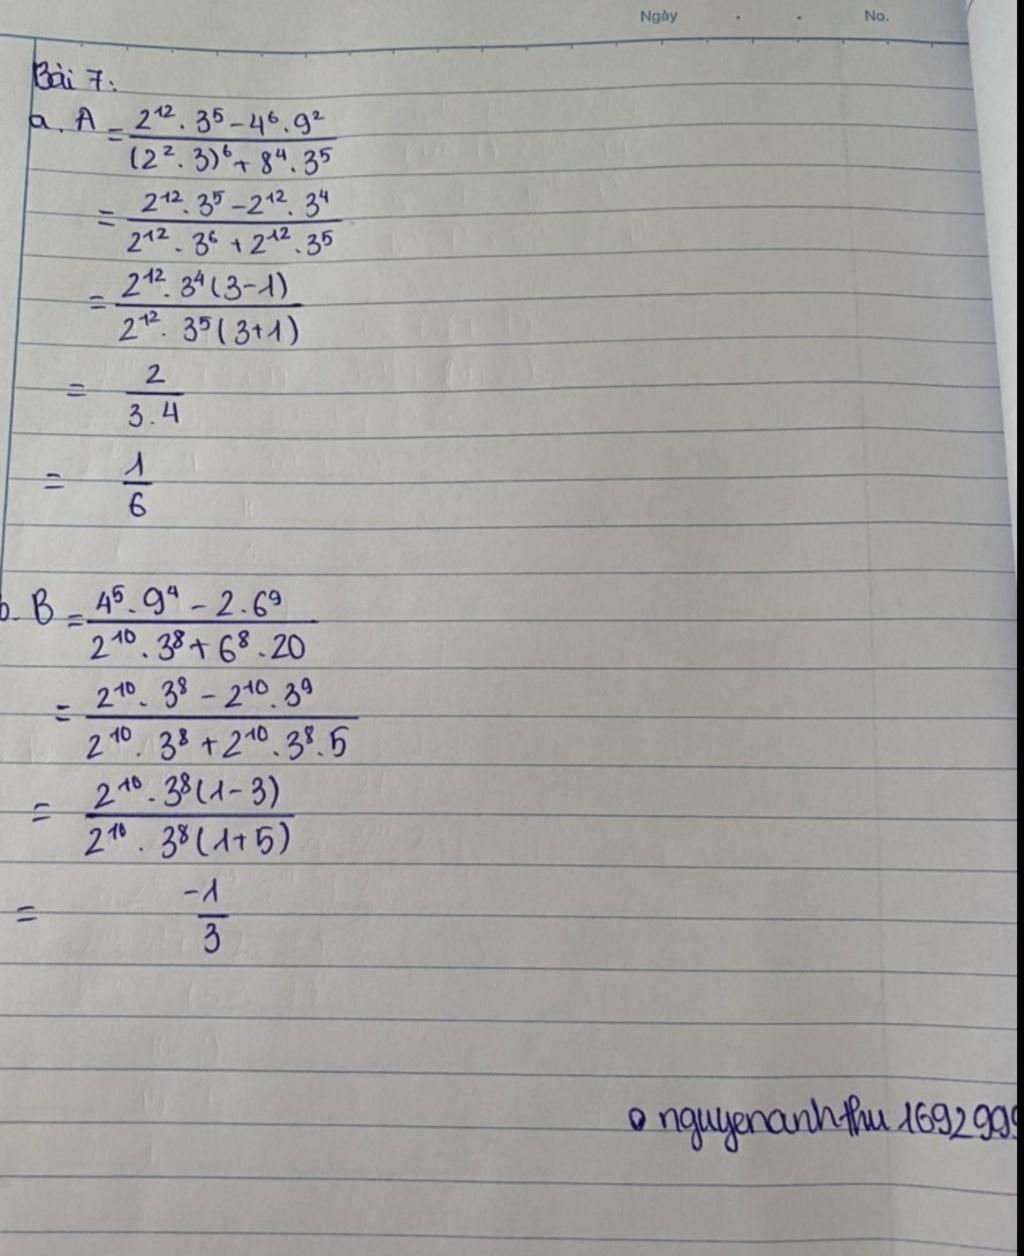 Ngày . . No.
Bài 7:
a. A = (2¹² . 3⁵ - 4⁶ . 9²) / ((2² . 3)⁶ + 8⁴ . 3⁵)
= (2¹² . 3⁵ - 2¹² . 3⁴) / (2¹² . 3⁶ + 2¹² . 3⁵)
= (2¹² . 3⁴ (3-1)) / (2¹² . 3⁵ (3+1))
= 2 / (3 . 4)
= 1 / 6
b. B = (4⁵ . 9⁴ - 2 . 6⁹) / (2¹⁰ . 3⁸ + 6⁸ . 20)
= (2¹⁰ . 3⁸ - 2¹⁰ . 3⁹) / (2¹⁰ . 3⁸ + 2¹⁰ . 3⁸ . 5)
= (2¹⁰ . 3⁸ (1-3)) / (2¹⁰ . 3⁸ (1+5))
= -1 / 3
nguyenanhthu 1692999